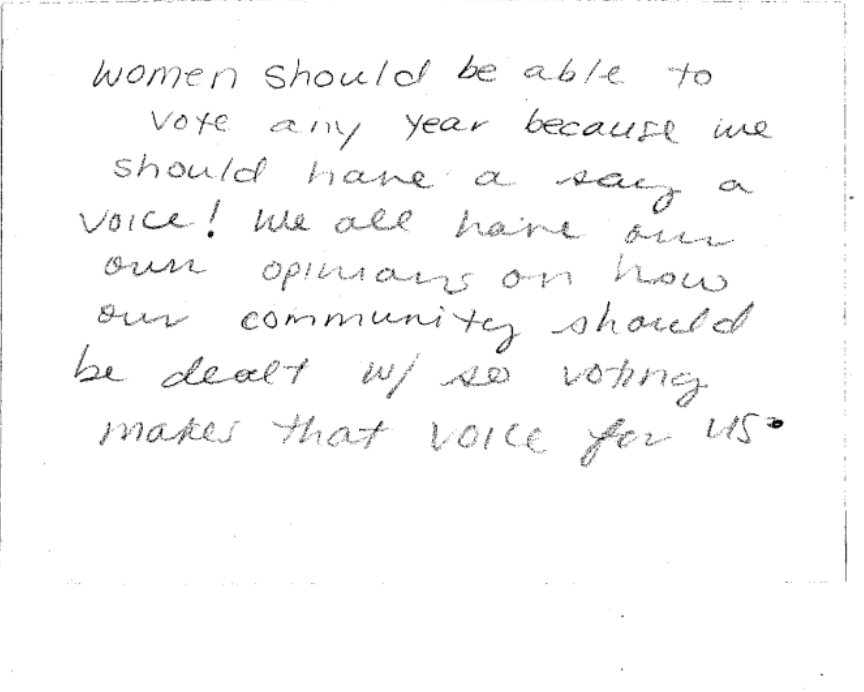 Women should be able to
vote any year because we
should have a say a
voice! We all have our
own opinions on how
our community should
be dealt w/ so voting
makes that voice for us.